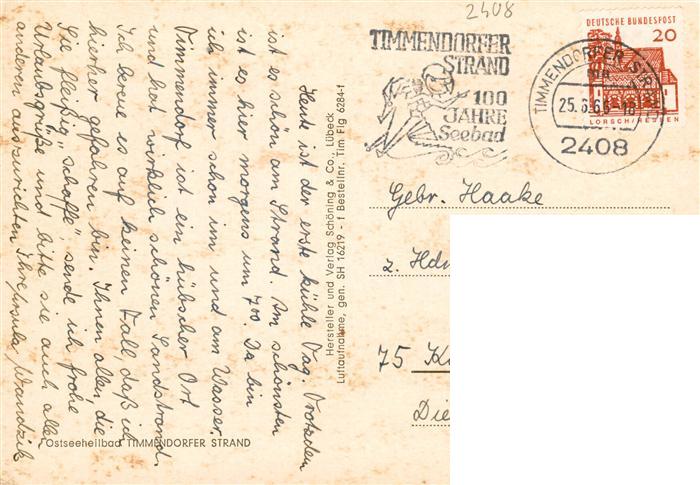 2408
TIMMENDORFER
STRAND
100
JAHRE
Seebad
DEUTSCHE BUNDESPOST
20
LORSCH/HESSEN
TIMMENDORFER STR
25.6.66-16
2408
Gebr. Haake
z. Hdn
75 K
Die
Heute ist der erste kühle Tag. Trotzdem
ist es schön am Strand. Am schönsten
ist es hier morgens um 7⁰⁰. Da bin
ich immer schon im und am Wasser.
Timmendorf ist ein hübscher Ort
und hat wirklich schönen Sandstrand.
Ich bereue es auf keinen Fall, daß ich
hierher gefahren bin. Ihnen allen, die
Sie fleißig "schaffe", sende ich frohe
Urlaubsgrüße und bitte sie auch allen
anderen auszurichten Ihre Ursula
Hersteller und Verlag Schöning & Co., Lübeck
Luftaufnahme, gen. SH 16219 - f Bestellnr. Tim Flg 6284-1
Ostseeheilbad TIMMENDORFER STRAND